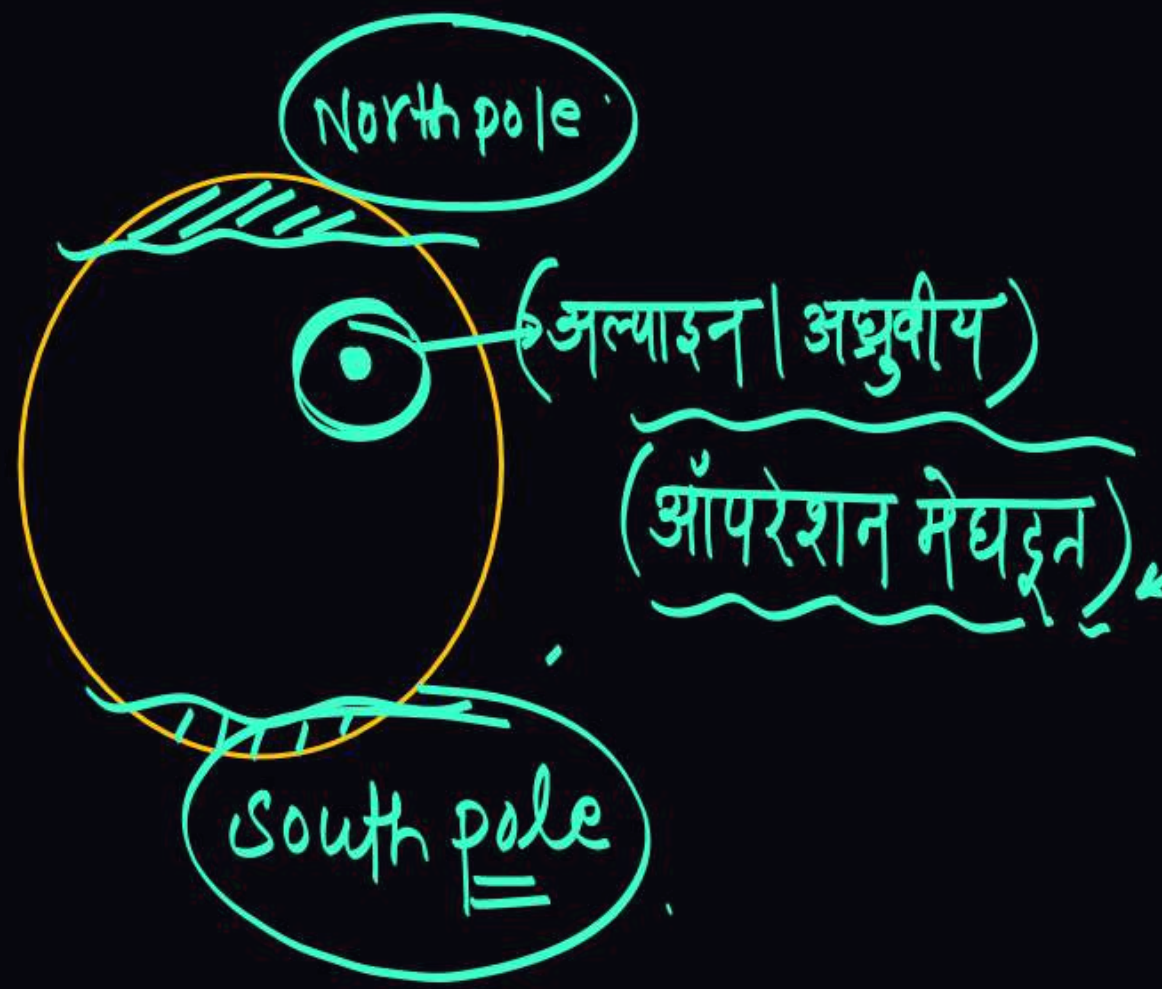 North pole
(अल्पाइन | अध्रुवीय)
(ऑपरेशन मेघदूत)
South pole